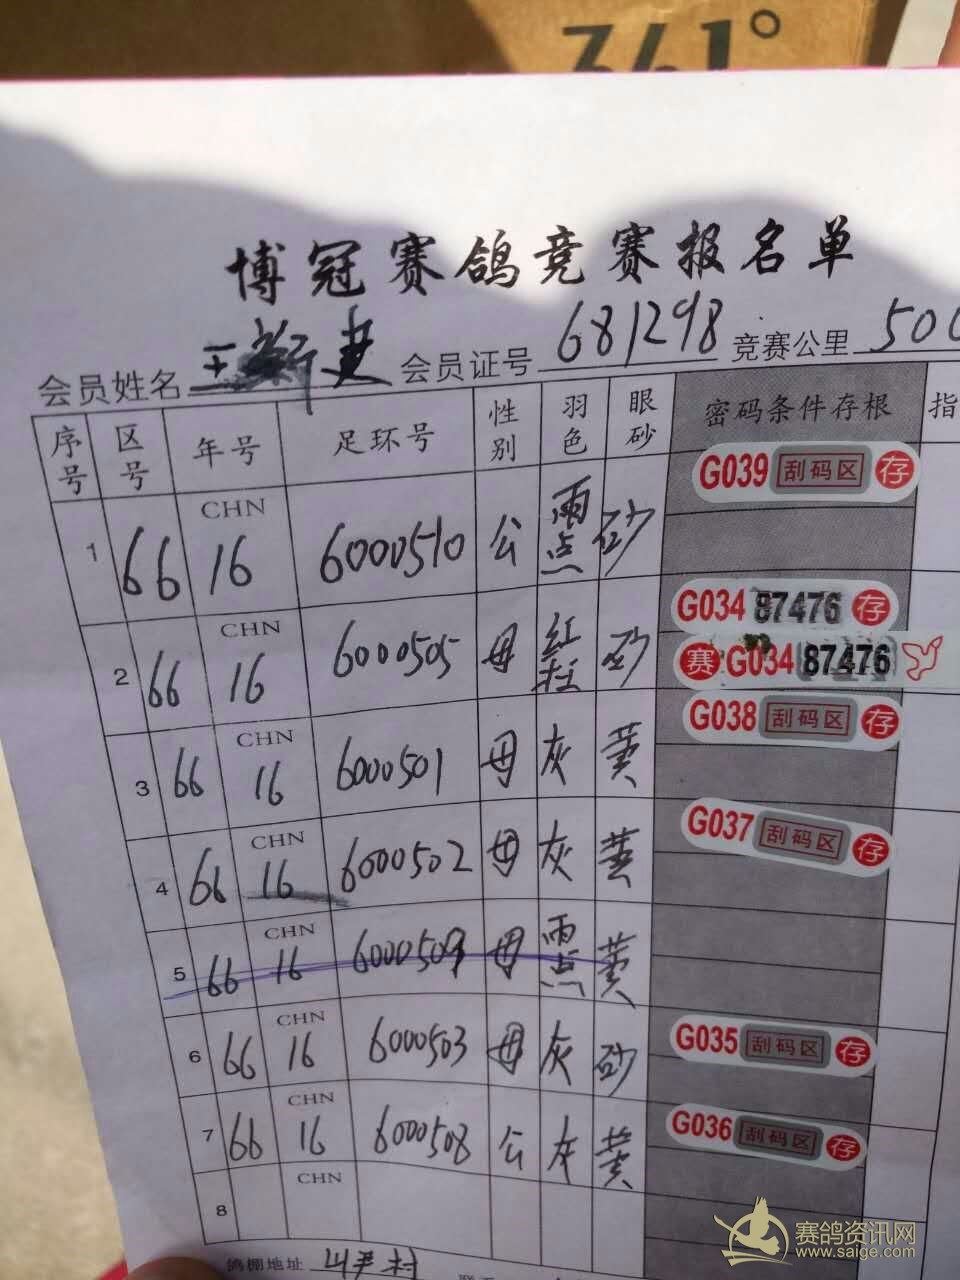 361°
博冠赛鸽竞赛报名单
会员姓名 王新建 会员证号 681298 竞赛公里 500
序号 区号 年号 足环号 性别 羽色 眼砂 密码条件存根 指
1 66 CHN 16 6000510 公 雨点 砂 G039 刮码区 存
2 66 CHN 16 6000505 母 红轮 砂 G034 87476 存
赛 G034 87476
3 66 CHN 16 6000501 母 灰 黄 G038 刮码区 存
4 66 CHN 16 6000502 母 灰 黄 G037 刮码区 存
5 66 CHN 16 6000509 母 雨点 黄
6 66 CHN 16 6000503 母 灰 砂 G035 刮码区 存
7 66 CHN 16 6000508 公 灰 黄 G036 刮码区 存
8 CHN
鸽棚地址
赛鸽资讯网
www.saige.com